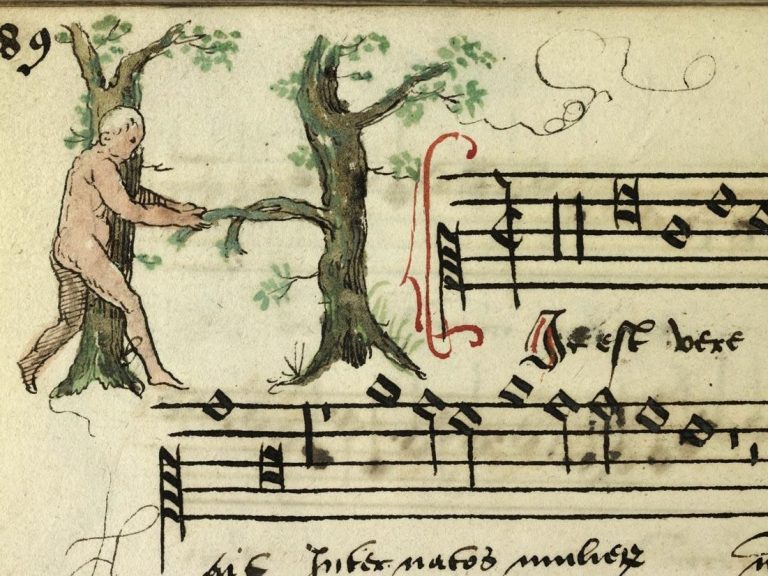 89
Ic est vere
Inter natos mulieꝝ